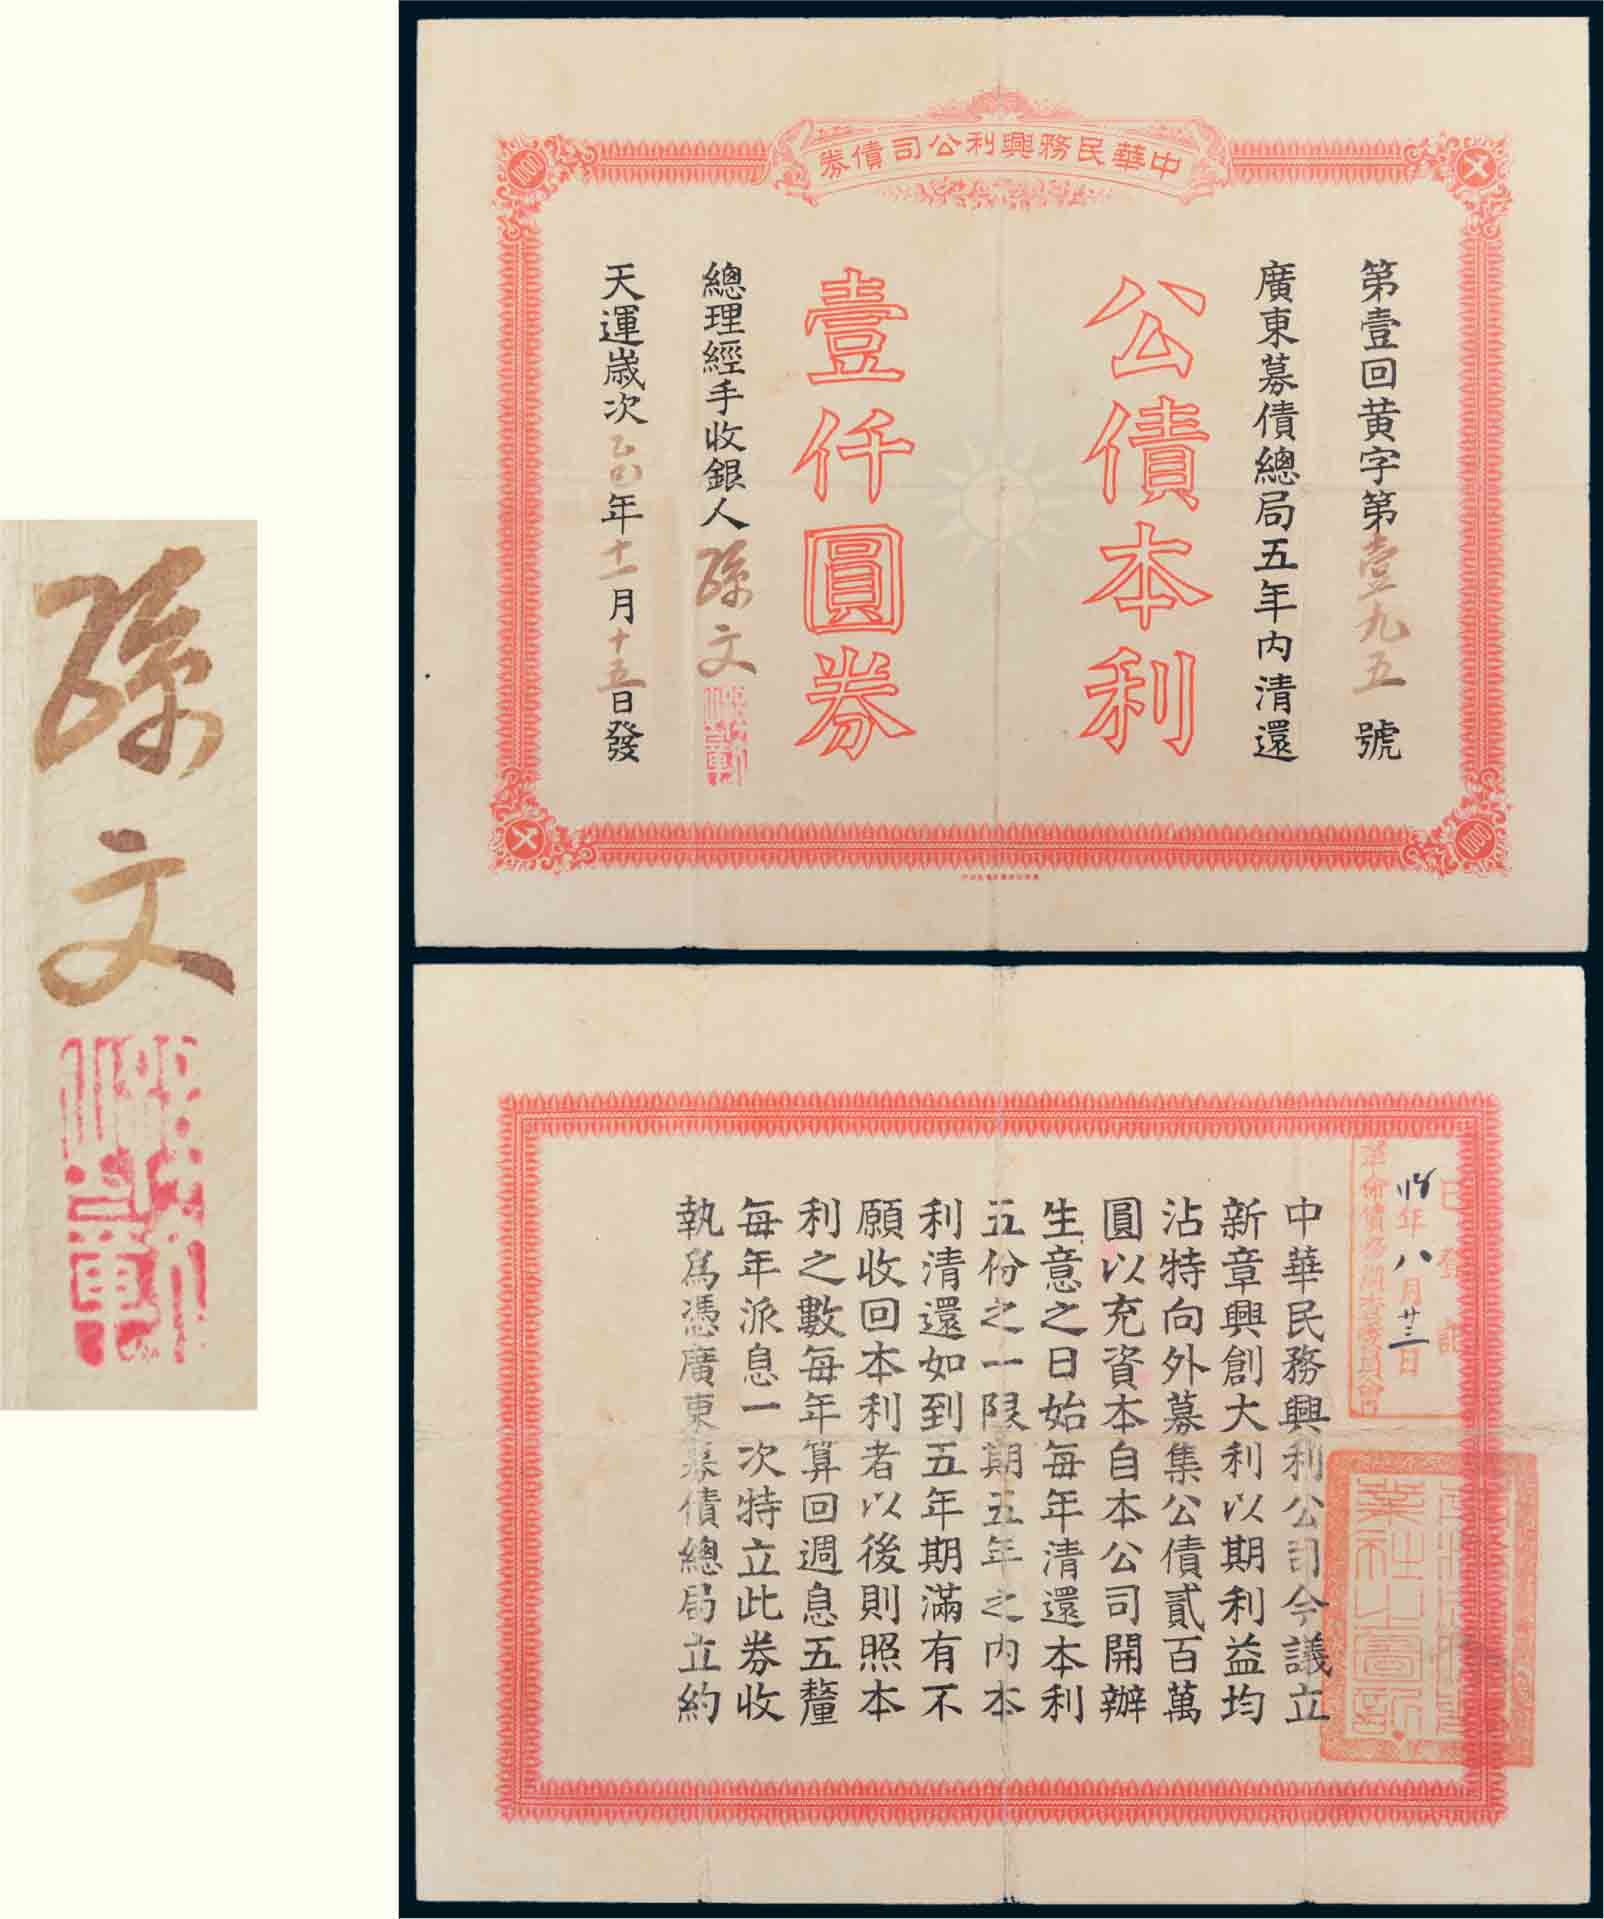 中華民務興利公司債券
1000
第壹回黄字第壹九五號
廣東募債總局五年內清還
公債本利
壹仟圓券
總理經手收銀人孫文
天運歲次乙巳年十一月十五日發
1000
孫文
已登記
年八月廿三日
革命債務調查委員會
中華民務興利公司今議立
新章興創大利以期利益均
沾特向外募集公債貳百萬
圓以充資本自本公司開辦
生意之日始每年清還本利
五份之一限期五年之內本
利清還如到五年期滿有不
願收回本利者以後則照本
利之數每年算回週息五釐
每年派息一次特立此券收
執爲憑廣東募債總局立約